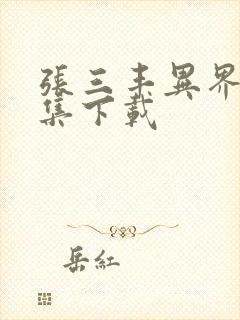 張三丰異界
集下載
岳紅